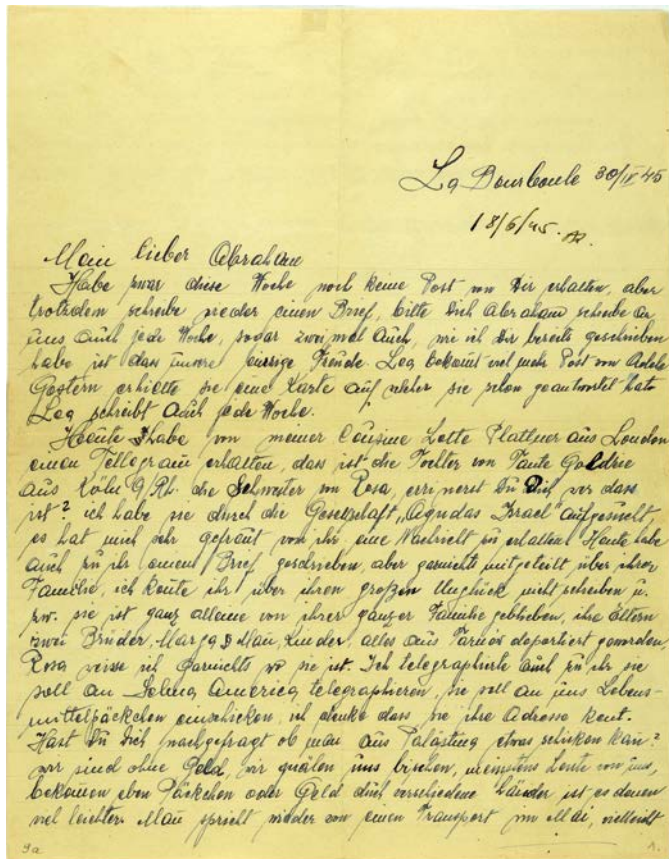 La Bourboule 30/IV 45
18/6/45.
Mein lieber Abraham
Habe zwar diese Woche noch keine Post von Dir erhalten, aber
trotzdem schreibe wieder einen Brief, bitte Dich Abraham schreibe an
uns auch jede Woche, sogar zwei mal auch, wie ich Dir bereits geschrieben
habe ist dass unsere einzige Freude. Lea bekomt viel mehr Post von Adele
Gestern erhielte sie eine Karte auf welcher sie schon geantwortet hat.
Lea schreibt auch jede Woche.
Heute habe von meiner Cousine Lotte Plattner aus London
einen Tellegram erhalten, dass ist die Tochter von Tante Goldine
aus Köln a/Rh. die Schwester von Rosa, errinerst Du Dich wer dass
ist? ich habe sie durch die Gesellschaft „Agudas Israel" aufgesucht,
es hat mich sehr gefräut von ihr eine Nachricht zu erhalten. Heute habe
auch zu ihr einen Brief geschrieben, aber garnichts mitgeteilt über ihrer
Familie, ich konte ihr über ihren großen Unglück nicht schreiben u.
zw. sie ist ganz alleine von ihrer ganzer Familie geblieben, ihre Eltern
zwei Brüder, Marga, Man, Kinder, alles aus Tarnow deportiert geworden,
Rosa weisse ich garnichts wo sie ist. Ich telegraphierte auch zu ihr sie
soll an Selma America telegraphieren, sie soll an uns Lebens-
mittelpäckchen einschicken, ich denke dass sie ihre Adresse kent.
Hast Du Dich nachgefragt ob man aus Palästina etwas schicken kan?
wir sind ohne Geld, wir quälen uns bischen, meinstens Leute von uns,
bekomen eben Päckchen oder Geld durch verschiedene Länder, ist es denen
viel leichter. Man spricht wieder von einen Transport im Mai, vielleicht
9a 1.